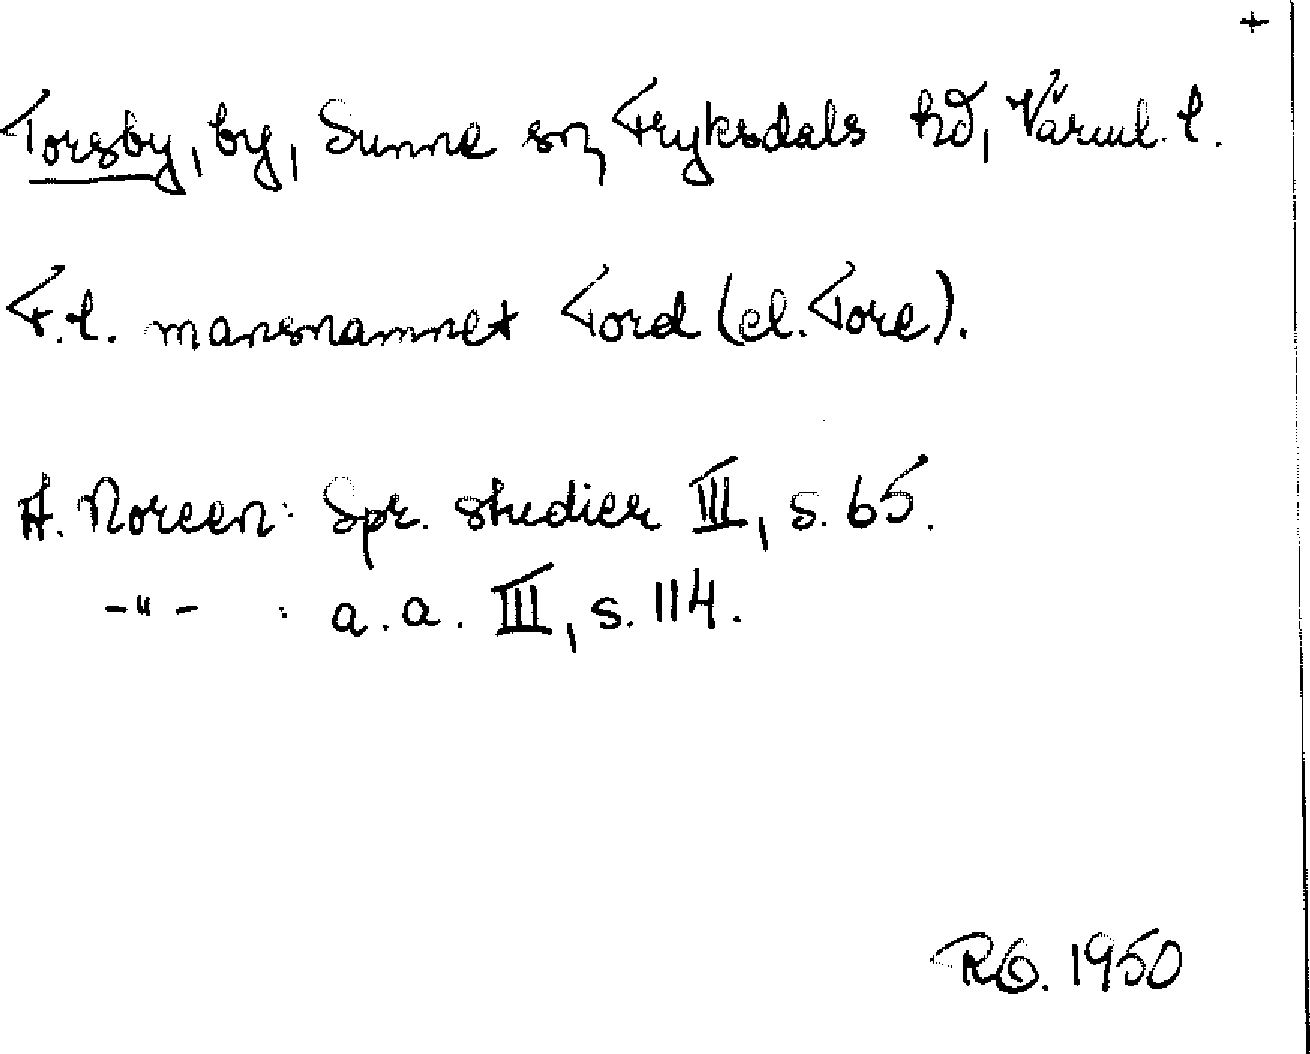 +
Torsby, by, Sunne sn, Fryksdals hd, Värml. l.
F.l. mansnamnet Tord (el. Tore).
A. Noreen: Spr. studier III, s. 65.
-"- : a.a. III, s. 114.
1950